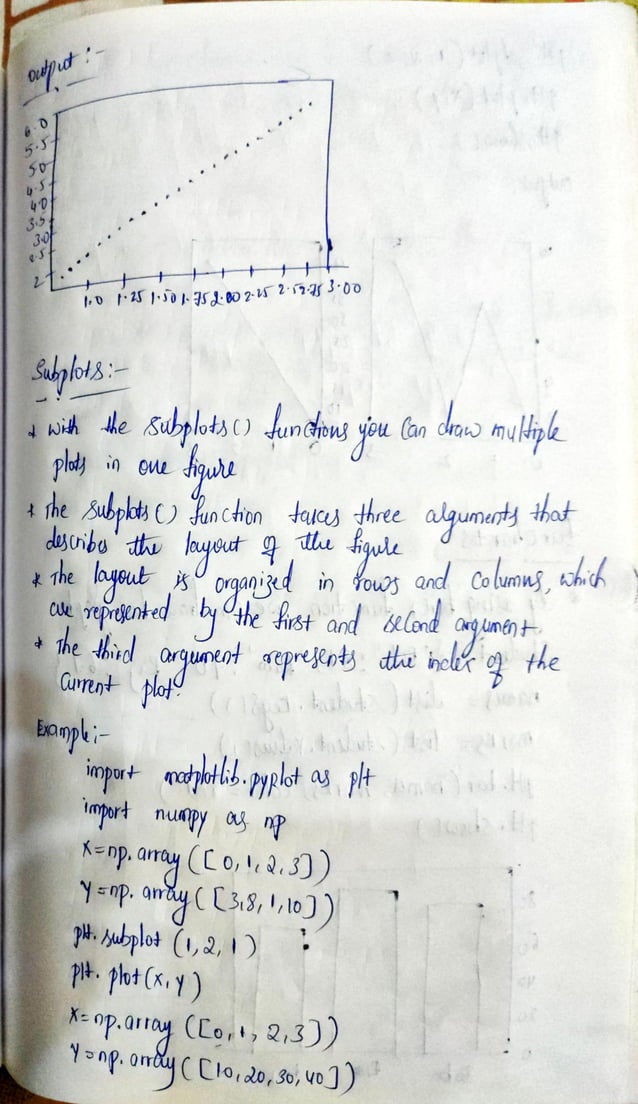 output :-
6.0
5.5
50
4.5
40
3.5
30
2.5
2
1.0 1.25 1.50 1.75 2.00 2.25 2.5 2.75 3.00
Subplots:-
* with the subplots() functions you can draw multiple
plots in one figure
* the subplots() function takes three alguments that
describes the layout of the figure
* The layout is organized in rows and columns, which
are represented by the first and second argument.
* the third argument represents the index of the
current plot.
Example:-
import matplotlib.pyplot as plt
import numpy as np
x=np.array([0,1,2,3])
y=np.array([3,8,1,10])
plt.subplot(1,2,1)
plt.plot(x,y)
x=np.array([0,1,2,3])
y=np.array([10,20,30,40])